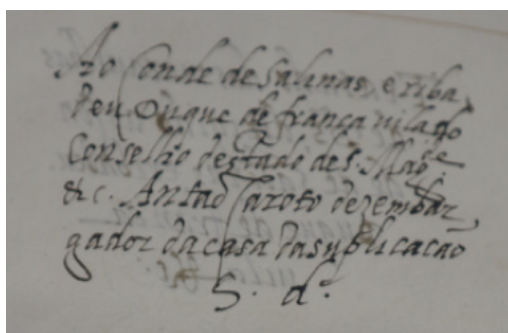 Ao Conde de Salinas e riba
deu Duque de franca uila do
Consellio destado de S. Mag.de
etc. Antao dezembar,
gador da casa da suplicacao
S. d.